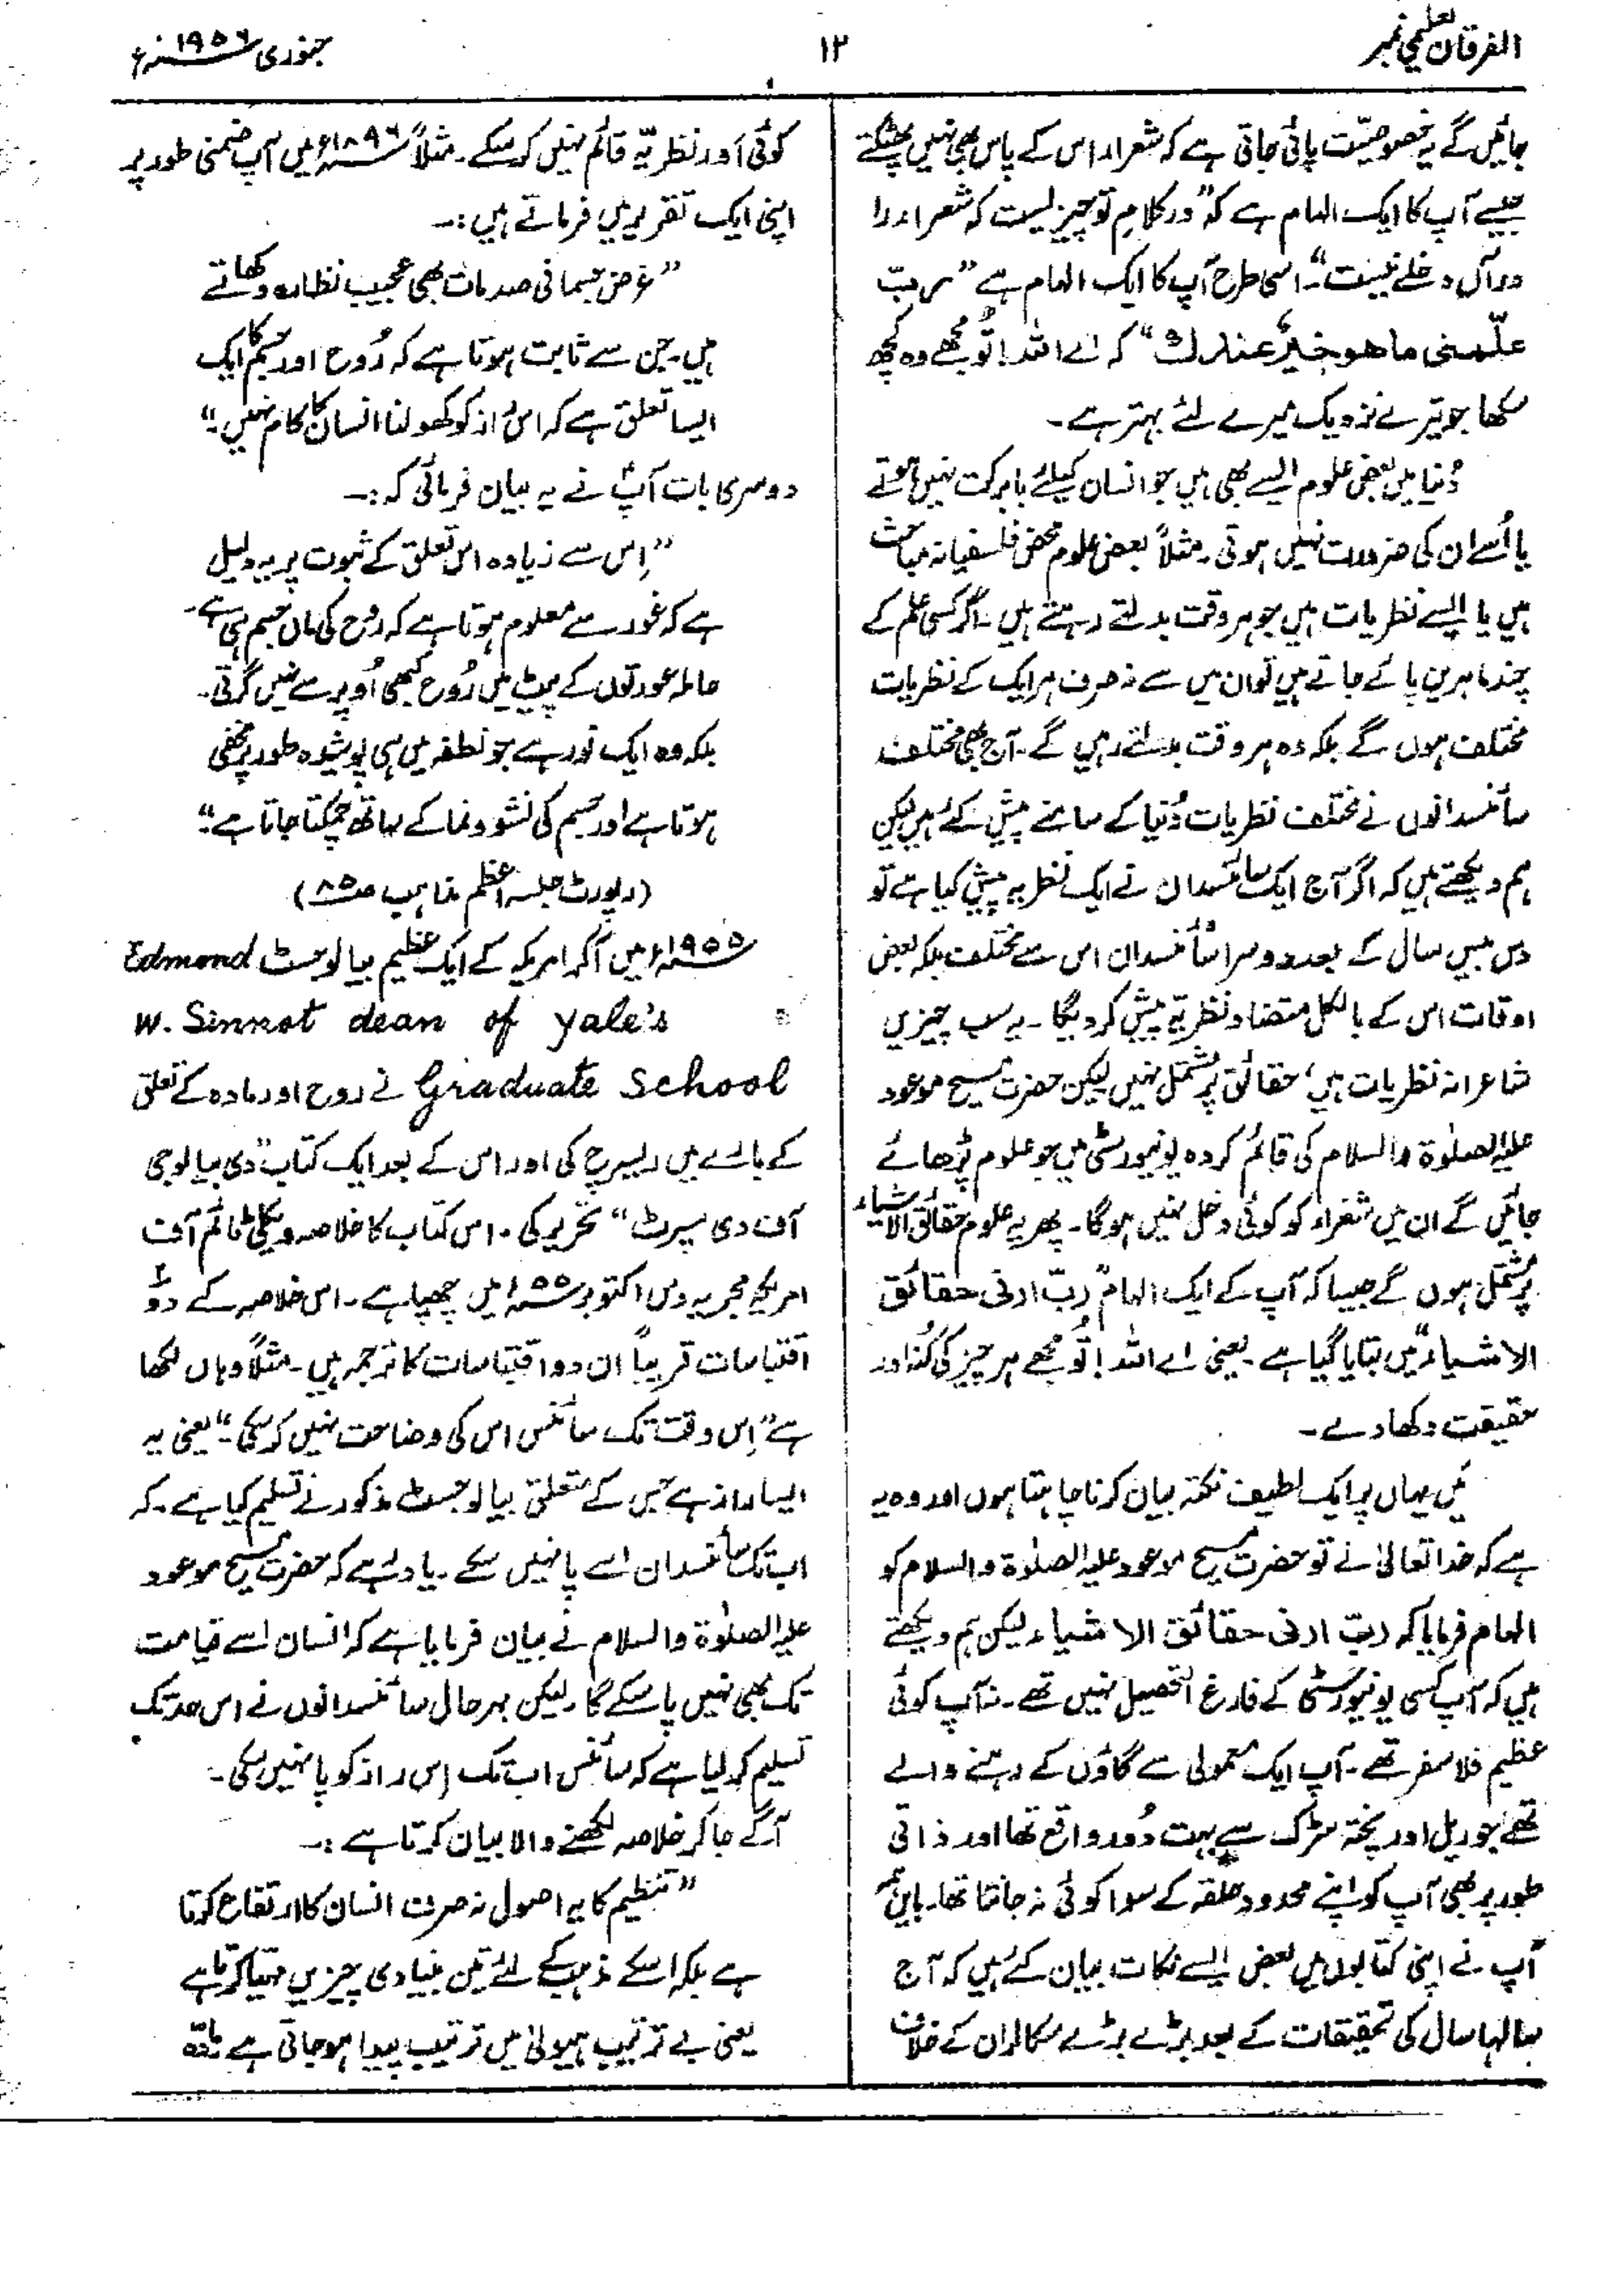 الفرقان تعلیمی نمبر
۱۲
جنوری ۱۹۵۶ء
جائیں گے یہ خصوصیّت پائی جاتی ہے کہ شعراء اس کے پاس بھی نہیں پھٹکتے
جیسے آپ کا ایک الہام ہے کہ "در کلامِ تو چیزیست کہ شعراء را
دراں دخلے نیست"۔ اسی طرح آپ کا ایک الہام ہے "ربّ
علّمنی ما ھو خیرٌ عندک" کہ اے اللہ! تُو مجھے وہ کچھ
سکھا جو تیرے نزدیک میرے لئے بہتر ہے۔
دُنیا میں بعض علوم ایسے بھی ہیں جو انسان کیلئے بابرکت نہیں ہوتے
یا اُسے ان کی ضرورت نہیں ہوتی۔ مثلاً بعض علوم محض فلسفیانہ مباحث
ہیں یا ایسے نظریات ہیں جو ہر وقت بدلتے رہتے ہیں۔ اگر کسی علم کے
چند ماہرین پائے جاتے ہیں تو ان میں سے نہ صرف ہر ایک کے نظریات
مختلف ہوں گے بلکہ وہ ہر وقت بدلتے رہیں گے۔ آج بھی مختلف
سائنسدانوں نے مختلف نظریات دُنیا کے سامنے پیش کئے ہیں لیکن
ہم دیکھتے ہیں کہ اگر آج ایک سائنسدان نے ایک نظریہ پیش کیا ہے تو
دس بیس سال کے بعد دوسرا سائنسدان اس سے مختلف بلکہ بعض
اوقات اس کے بالکل متضاد نظریّہ پیش کر دیگا۔ یہ سب چیزیں
شاعرانہ نظریات ہیں، حقائق پر مشتمل نہیں لیکن حضرت مسیح موعود
علیہ الصلوٰۃ والسلام کی قائم کردہ یونیورسٹی میں جو علوم پڑھائے
جائیں گے ان میں شعراء کو کوئی دخل نہیں ہوگا۔ پھر یہ علوم حقائق الاشیاء
پر مشتمل ہوں گے جیسا کہ آپ کے ایک الہام "ربّ ارنی حقائق
الاشیاء" میں بتایا گیا ہے۔ یعنی اے اللہ! تُو مجھے ہر چیز کی کُنہ اور
حقیقت دکھا دے۔
مَیں یہاں پر ایک لطیف نکتہ بیان کرنا چاہتا ہوں اور وہ یہ
ہے کہ خدا تعالیٰ نے تو حضرت مسیح موعود علیہ الصلوٰۃ والسلام کو
الہام فرمایا کہ ربّ ارنی حقائق الاشیاء لیکن ہم دیکھتے
ہیں کہ آپ کسی یونیورسٹی کے فارغ التحصیل نہیں تھے۔ نہ آپ کوئی
عظیم فلاسفر تھے۔ آپ ایک معمولی سے گاؤں کے رہنے والے
تھے جو ریل اور پختہ سڑک سے بہت دُور واقع تھا اور ذاتی
طور پر بھی آپ کو اپنے محدود حلقہ کے سوا کوئی نہ جانتا تھا۔ بایں ہمہ
آپ نے اپنی کتابوں میں بعض ایسے نکات بیان کئے ہیں کہ آج
سالہا سال کی تحقیقات کے بعد بڑے بڑے سکالر ان کے خلاف
کوئی اَور نظریّہ قائم نہیں کر سکے۔ مثلاً ۱۸۹۶ء میں آپ ضمنی طور پر
اپنی ایک تقریر میں فرماتے ہیں:۔
"غرض جسمانی صدمات بھی عجیب نظارہ دکھاتے
ہیں۔ جن سے ثابت ہوتا ہے کہ رُوح اور جسم کا ایک
ایسا تعلق ہے کہ اس راز کو کھولنا انسان کا کام نہیں۔"
دوسری بات آپؑ نے یہ بیان فرمائی کہ:۔
"اِس سے زیادہ اس تعلق کے ثبوت پر یہ دلیل
ہے کہ غور سے معلوم ہوتا ہے کہ رُوح کی ماں جسم ہی ہے۔
حاملہ عورتوں کے پیٹ میں رُوح کبھی اُوپر سے نہیں گرتی۔
بلکہ وہ ایک نور ہے جو نطفہ میں ہی پوشیدہ طور پر مخفی
ہوتا ہے اور جسم کی نشوونما کے ساتھ چمکتا جاتا ہے"
(رپورٹ جلسہ اعظم مذاہب صفحہ ۸۵)
۱۹۵۵ء میں آکر امریکہ کے ایک عظیم بیالوجسٹ Edmond
W. Sinnot dean of yale's
Graduate School نے روح اور مادہ کے تعلق
کے بارے میں ریسرچ کی اور اس کے بعد ایک کتاب "دی بیالوجی
آف دی سپرٹ" تحریر کی۔ اس کتاب کا خلاصہ ویکلی ٹائم آف
امریکہ مجریہ دس اکتوبر ۱۹۵۵ء میں چھپا ہے۔ اس خلاصہ کے دو
اقتباسات قریباً ان دو اقتباسات کا ترجمہ ہیں۔ مثلاً وہاں لکھا
ہے "اِس وقت تک سائنس اس کی وضاحت نہیں کر سکی۔" یعنی یہ
ایسا راز ہے جس کے متعلق بیالوجسٹ مذکور نے تسلیم کیا ہے۔ کہ
ابتک سائنسدان اسے پا نہیں سکے۔ یاد رہے کہ حضرت مسیح موعود
علیہ الصلوٰۃ والسلام نے بیان فرمایا ہے کہ انسان اسے قیامت
تک بھی نہیں پا سکے گا۔ لیکن بہرحال سائنسدانوں نے اس حد تک
تسلیم کر لیا ہے کہ سائنس ابتک اِس راز کو پا نہیں سکی۔
آگے جا کر خلاصہ لکھنے والا بیان کرتا ہے:۔
"تنظیم کا یہ اصول نہ صرف انسان کا ارتفاع کرتا
ہے بلکہ اسکے مذہب کے لئے تین بنیادی چیزیں مہیّا کرتا ہے
یعنی بے ترتیب ہیولیٰ میں ترتیب پیدا ہو جاتی ہے مادّہ